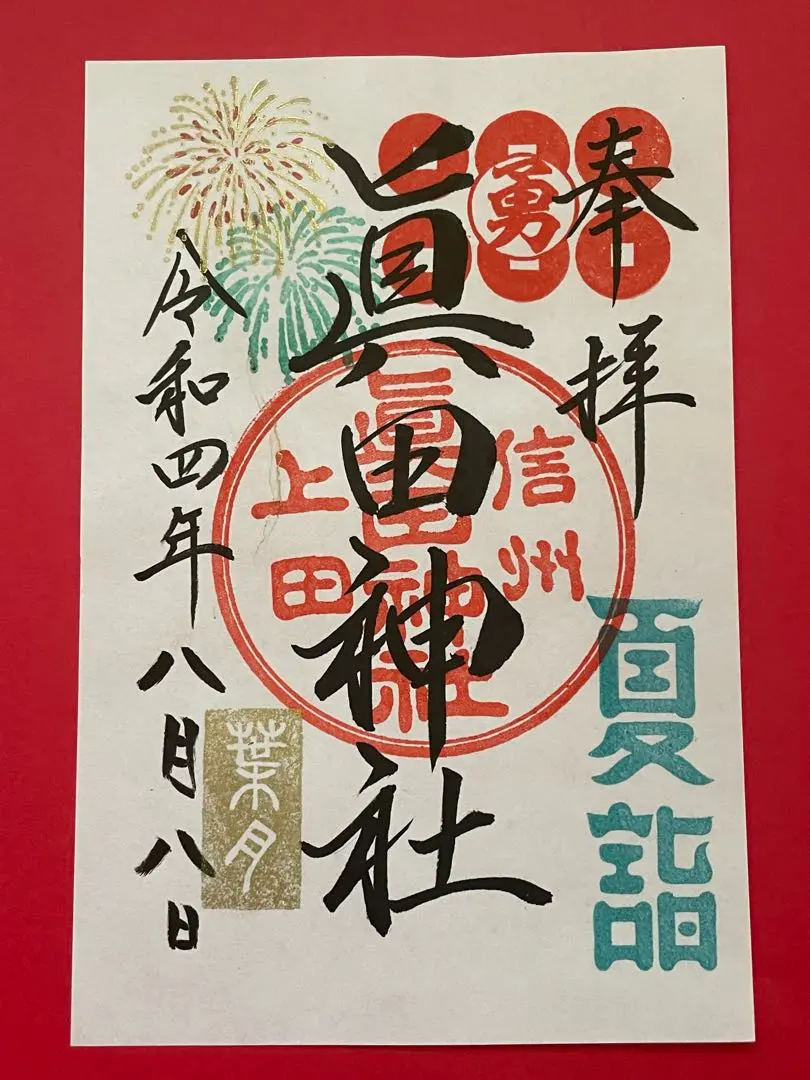 奉拝
勇
夏詣
眞田神社
信州
眞田神社
上田
葉月
令和四年八月八日